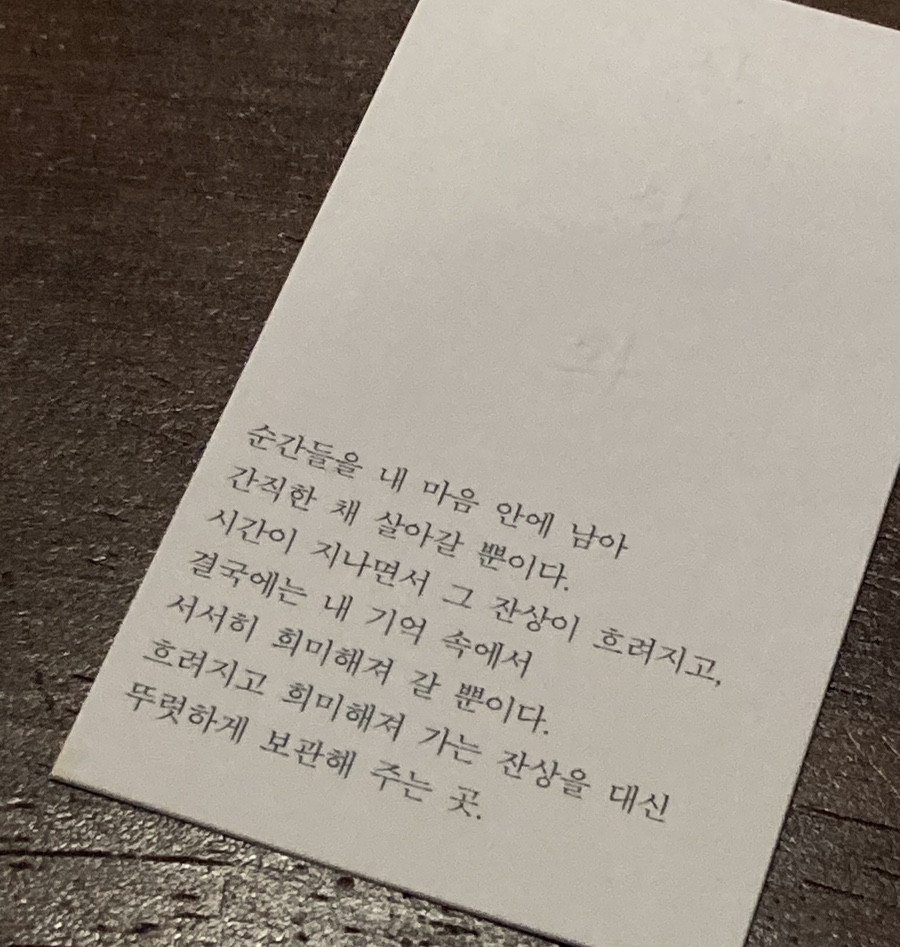 순간들을 내 마음 안에 남아
간직한 채 살아갈 뿐이다.
시간이 지나면서 그 잔상이 흐려지고,
결국에는 내 기억 속에서
서서히 희미해져 갈 뿐이다.
흐려지고 희미해져 가는 잔상을 대신
뚜렷하게 보관해 주는 곳.